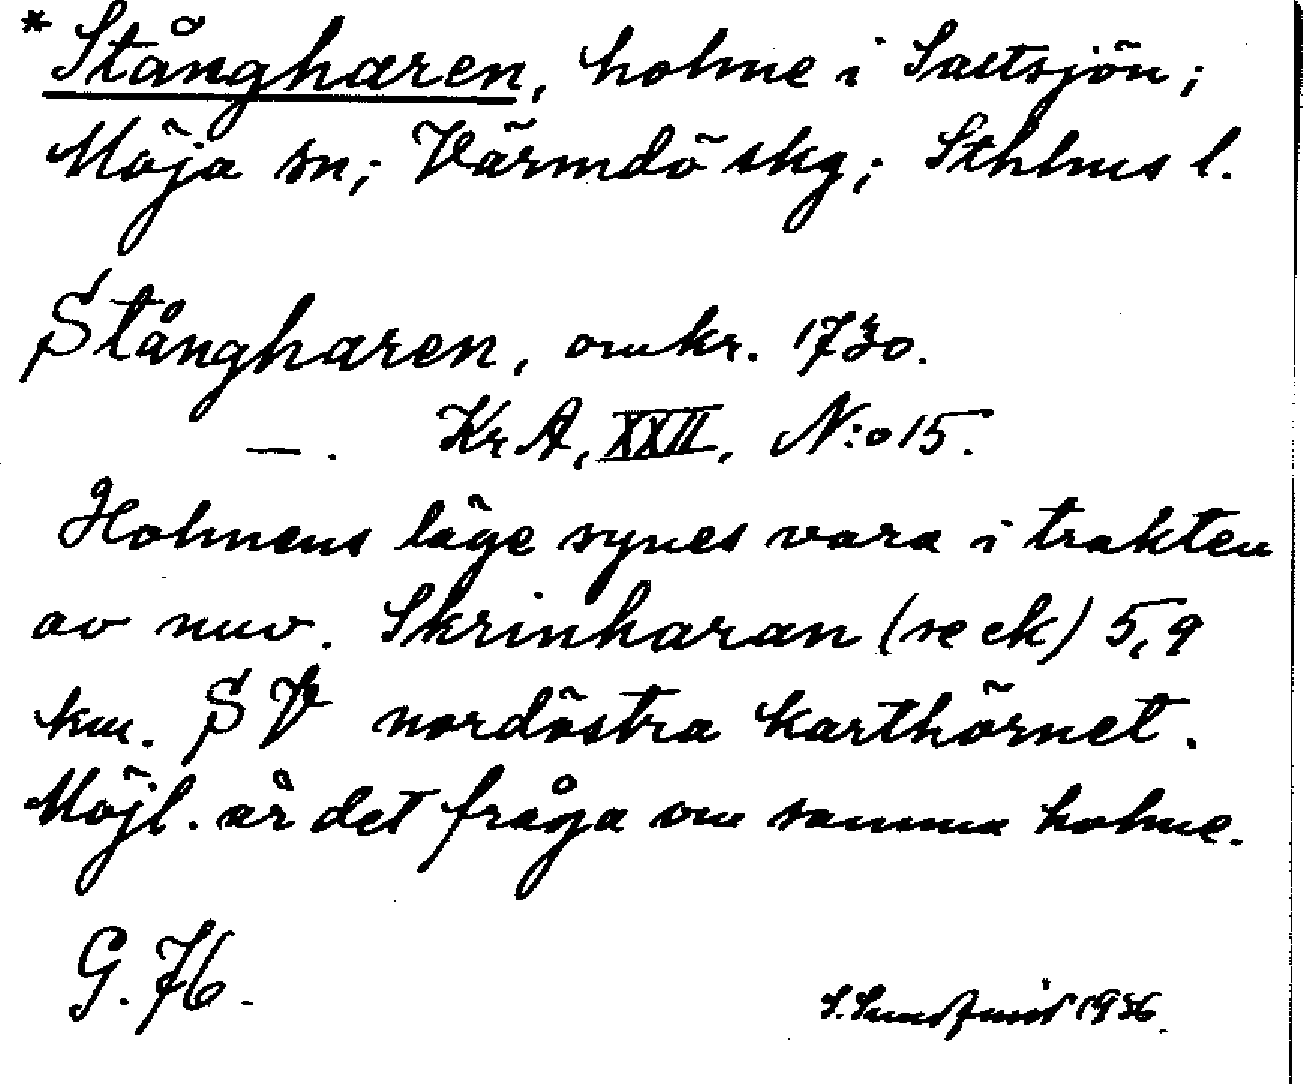 * Stångharen, holme i Saltsjön;
Möja sn; Värmdö skg; Sthlms l.
Stångharen, omkr. 1730.
— . Kr A, XXII, N:o 15.
Holmens läge synes vara i trakten
av nuv. Skrinharan (se ek) 5,9
km. SV nordöstra karthörnet.
Möjl. är det fråga om samma holme.
G. 76.
1936.